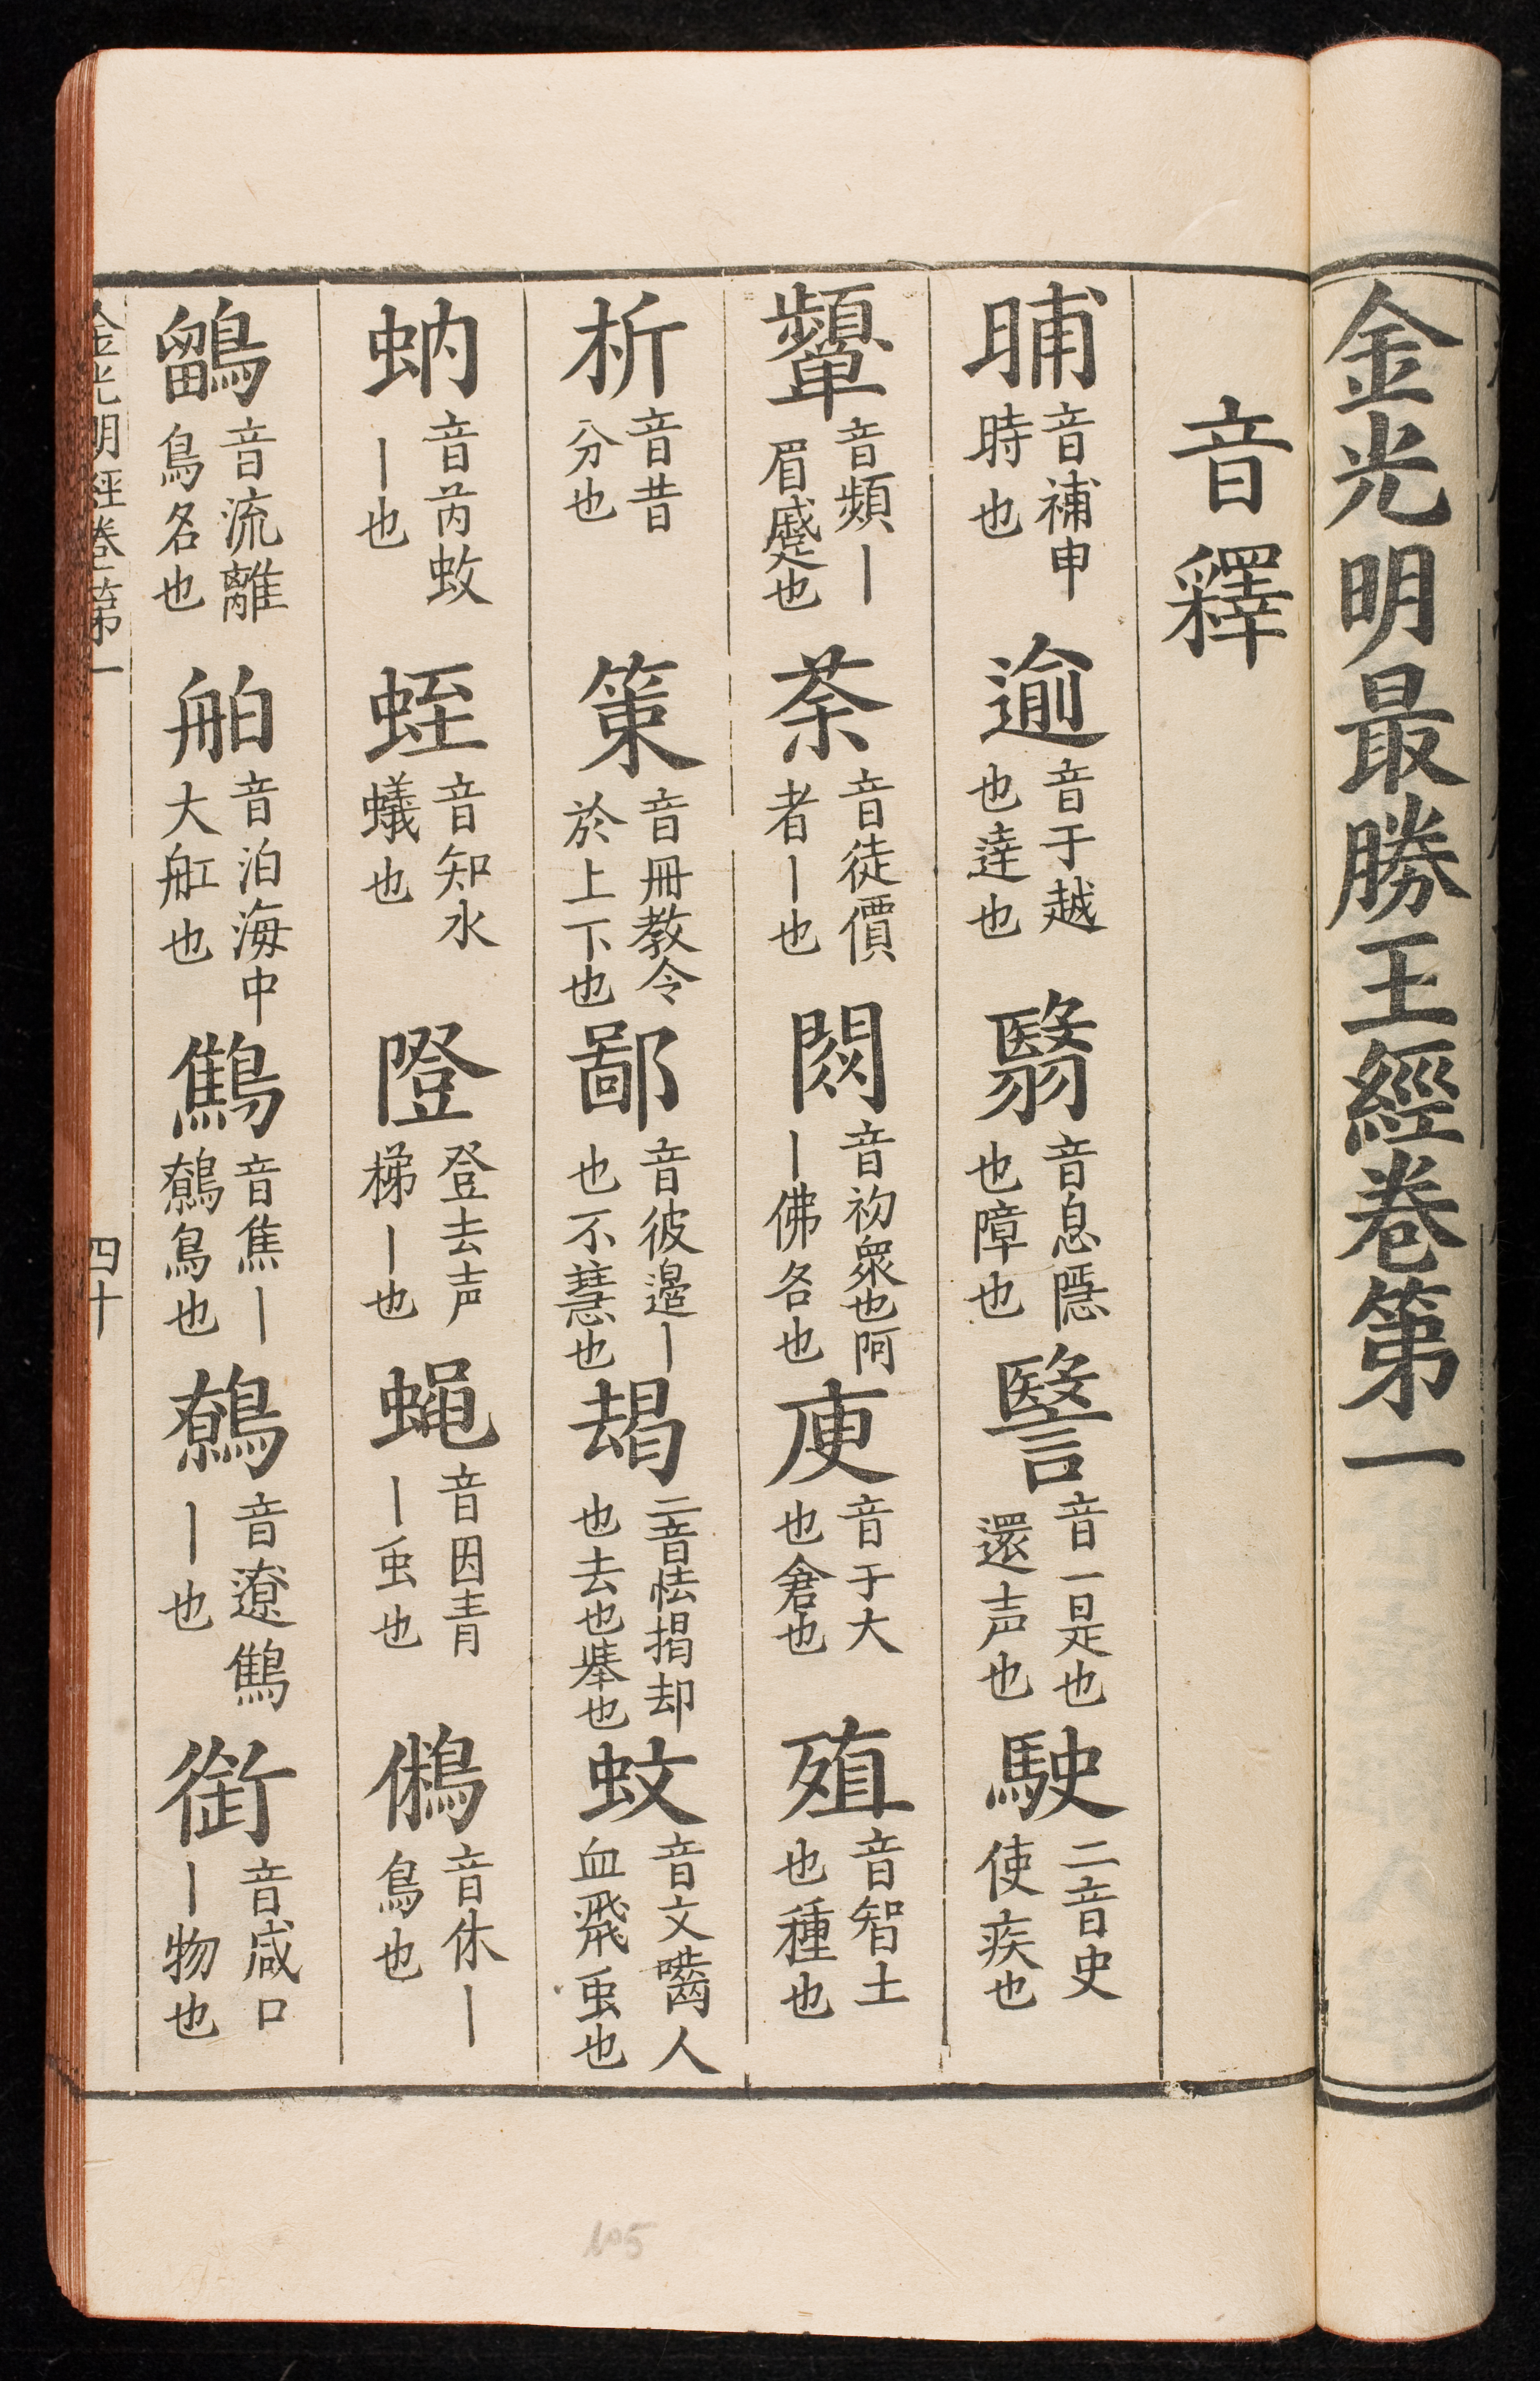 金光明最勝王經卷第一
音釋
晡 音補申時也 逾 音于越也達也 翳 音息隱也障也 毉 音一是也還声也 駛 二音史使疾也
顰 音頻丨眉蹙也 荼 音徒價者丨也 閦 音初眾也阿丨佛名也 庾 音于大也倉也 殖 音智土也種也
析 音昔分也 策 音冊教令於上下也 鄙 音彼邊丨也不慧也 朅 二音怯揭却也去也舉也 蚊 音文嚙人血飛䖝也
蚋 音芮蚊丨也 蛭 音知水蟻也 隥 登去声梯丨也 蝇 音因青丨䖝也 鵂 音休丨鳥也
鶹 音流離鳥名也 舶 音泊海中大舡也 鷦 音焦丨鷯鳥也 鷯 音遼鷦丨也 銜 音咸口丨物也
金光明經卷第一 四十
105